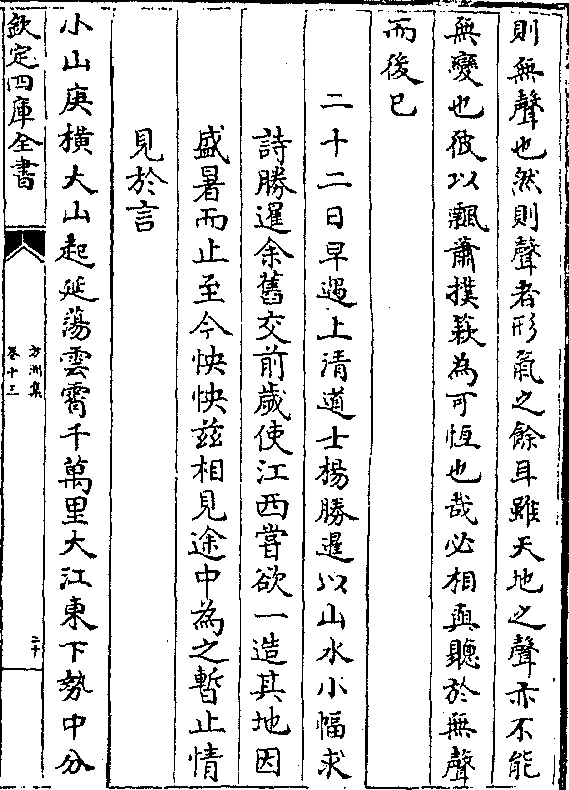 則無聲也然則聲者形氣之餘耳雖天地之聲亦不能
無變也彼以飄蕭撲簌為可恆也哉必相與聽於無聲
而後已
二十二日早遇上清道士楊勝暹以山水小幅求
詩勝暹余舊交前歲使江西嘗欲一造其地因
盛暑而止至今怏怏兹相見途中為之暫止情
見於言
小山庚橫大山起延蕩雲霄千萬里大江東下勢中分
欽定四庫全書
方洲集
卷十三
二十